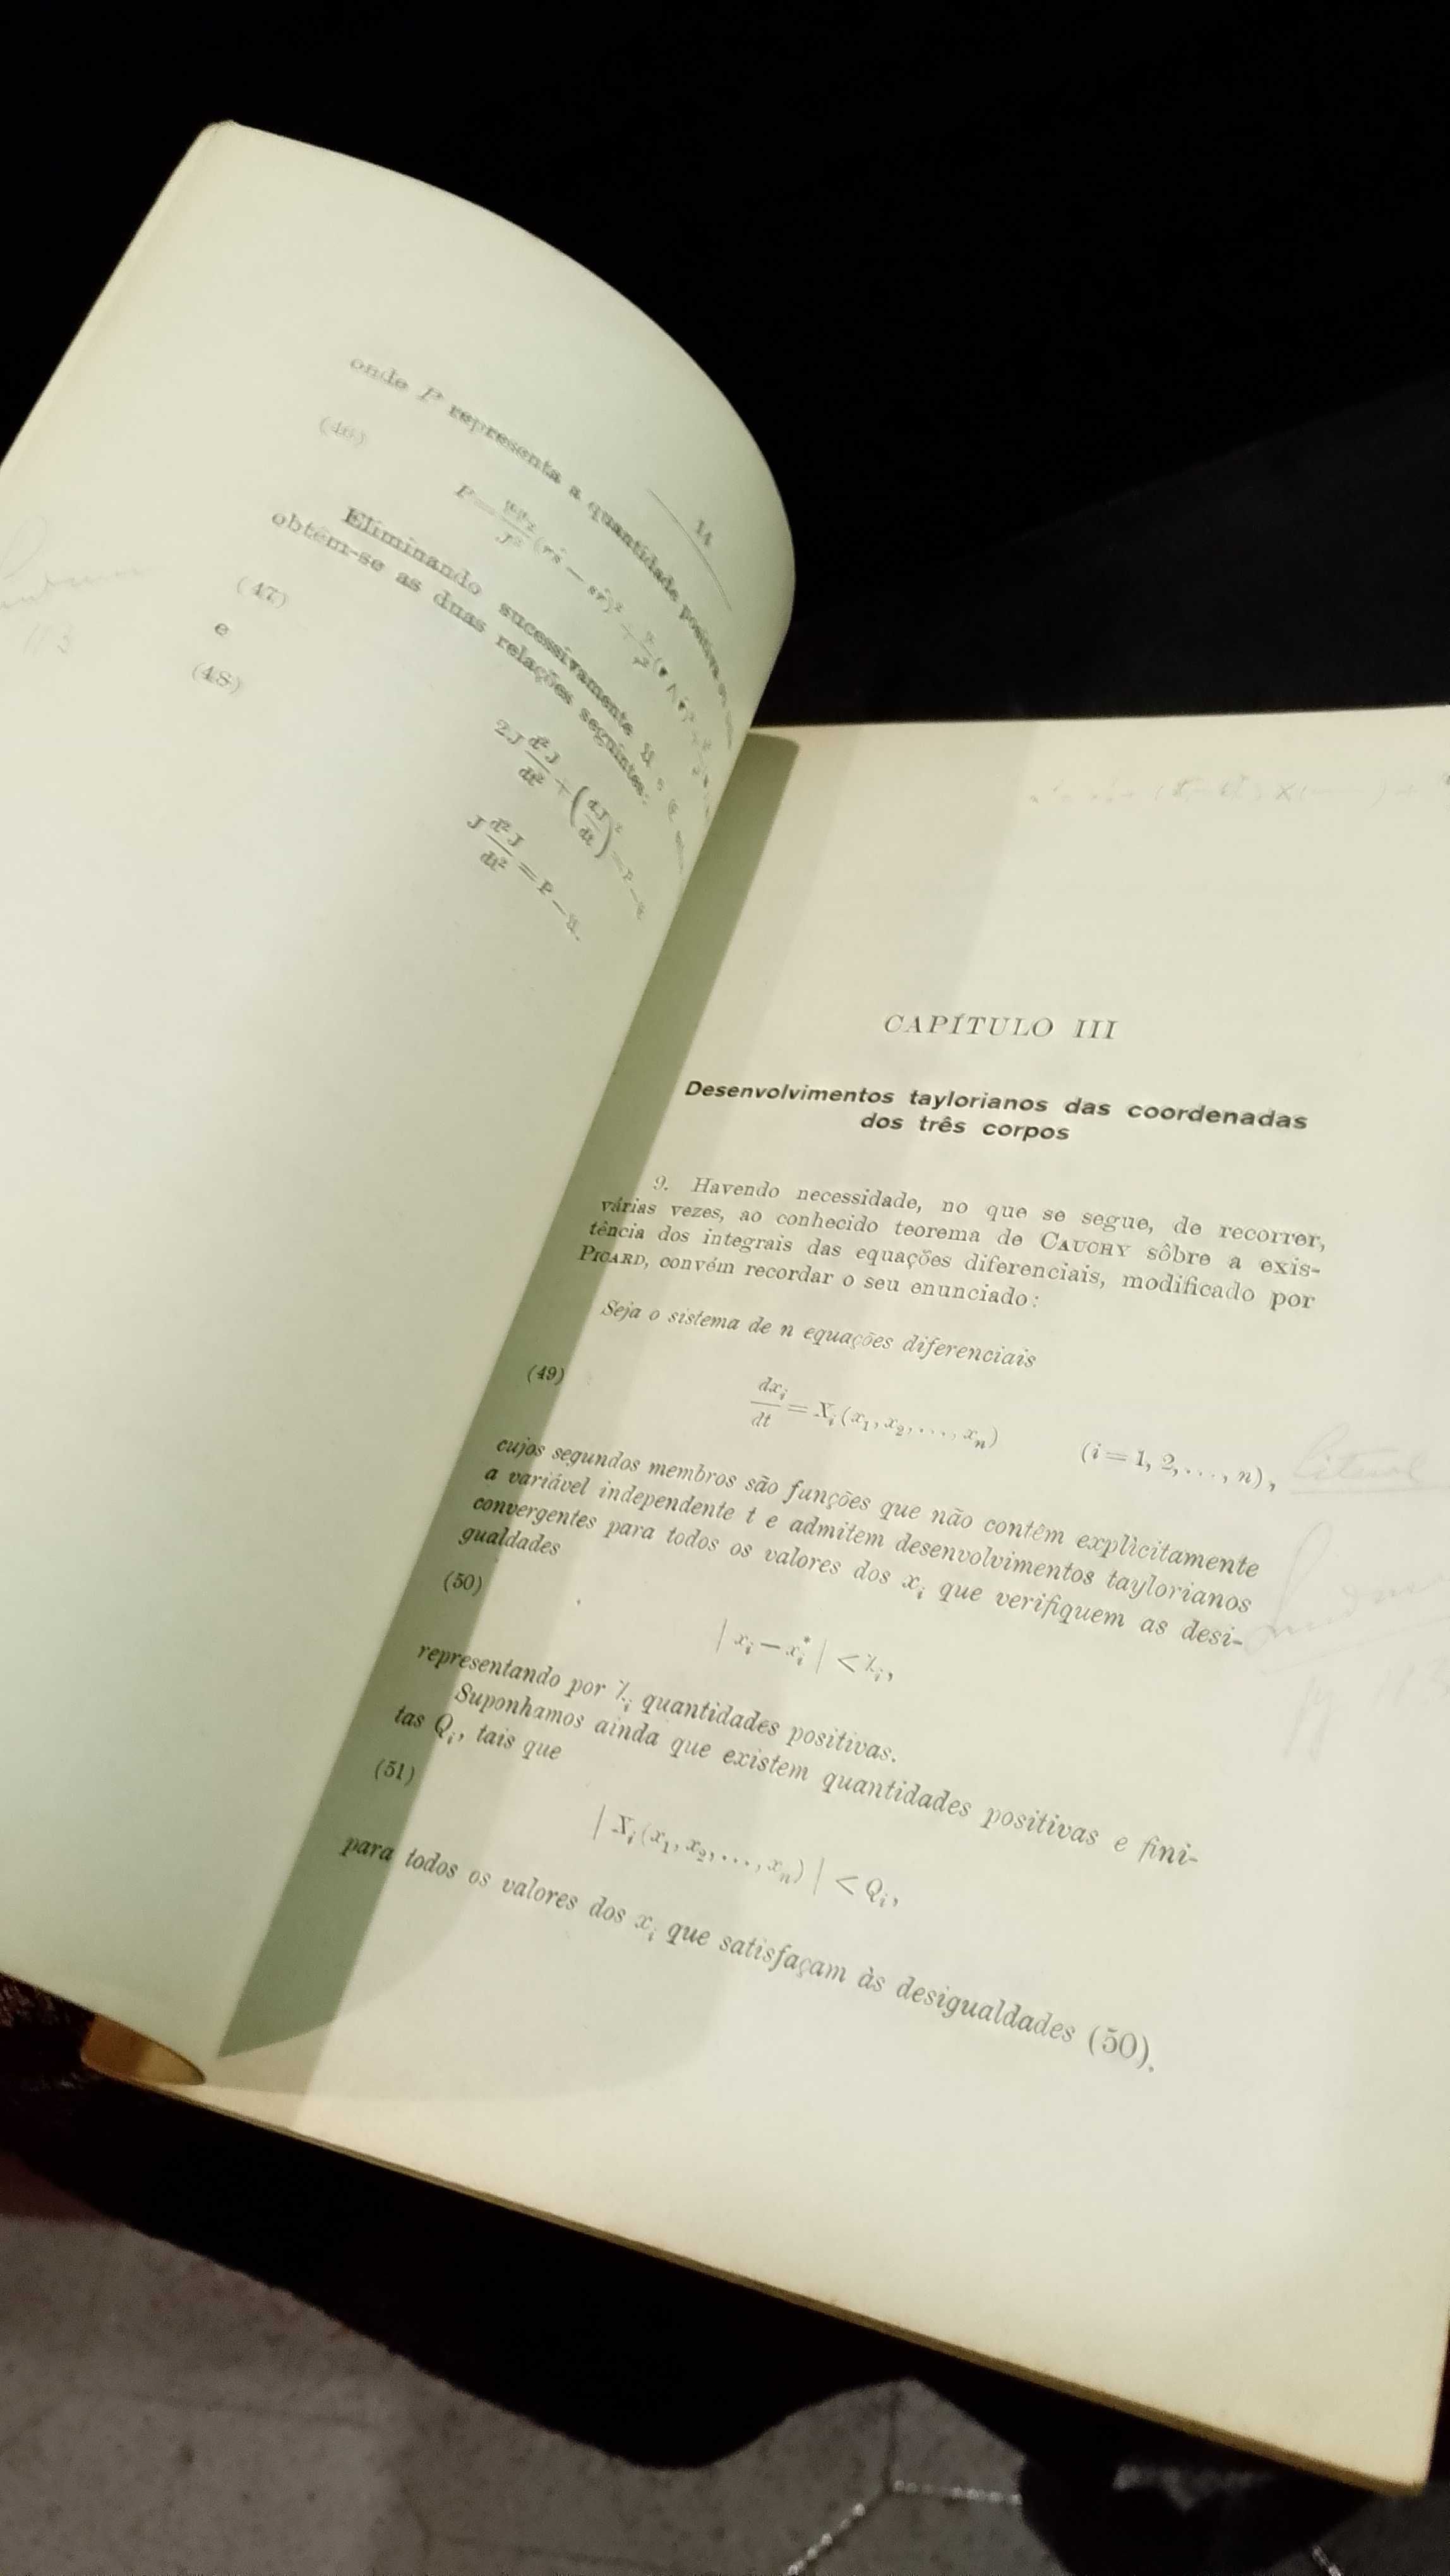 14
onde P representa a quantidade positiva
(46)
Eliminando sucessivamente
obtêm-se as duas relações seguintes:
(47) 2J d²J/dt² + (dJ/dt)² = P —
e
(48) J d²J/dt² = P — 𝔘.
CAPÍTULO III
Desenvolvimentos taylorianos das coordenadas
dos três corpos
9. Havendo necessidade, no que se segue, de recorrer,
várias vezes, ao conhecido teorema de CAUCHY sôbre a exis-
tência dos integrais das equações diferenciais, modificado por
PICARD, convém recordar o seu enunciado:
Seja o sistema de n equações diferenciais
(49) dxᵢ/dt = Xᵢ(x₁, x₂, ..., xₙ) (i = 1, 2, ..., n),
cujos segundos membros são funções que não contêm explìcitamente
a variável independente t e admitem desenvolvimentos taylorianos
convergentes para todos os valores dos xᵢ que verifiquem as desi-
gualdades
(50) | xᵢ — xᵢ* | < χᵢ,
representando por χᵢ quantidades positivas.
Suponhamos ainda que existem quantidades positivas e fini-
tas Qᵢ, tais que
(51) | Xᵢ(x₁, x₂, ..., xₙ) | < Qᵢ,
para todos os valores dos xᵢ que satisfaçam às desigualdades (50).